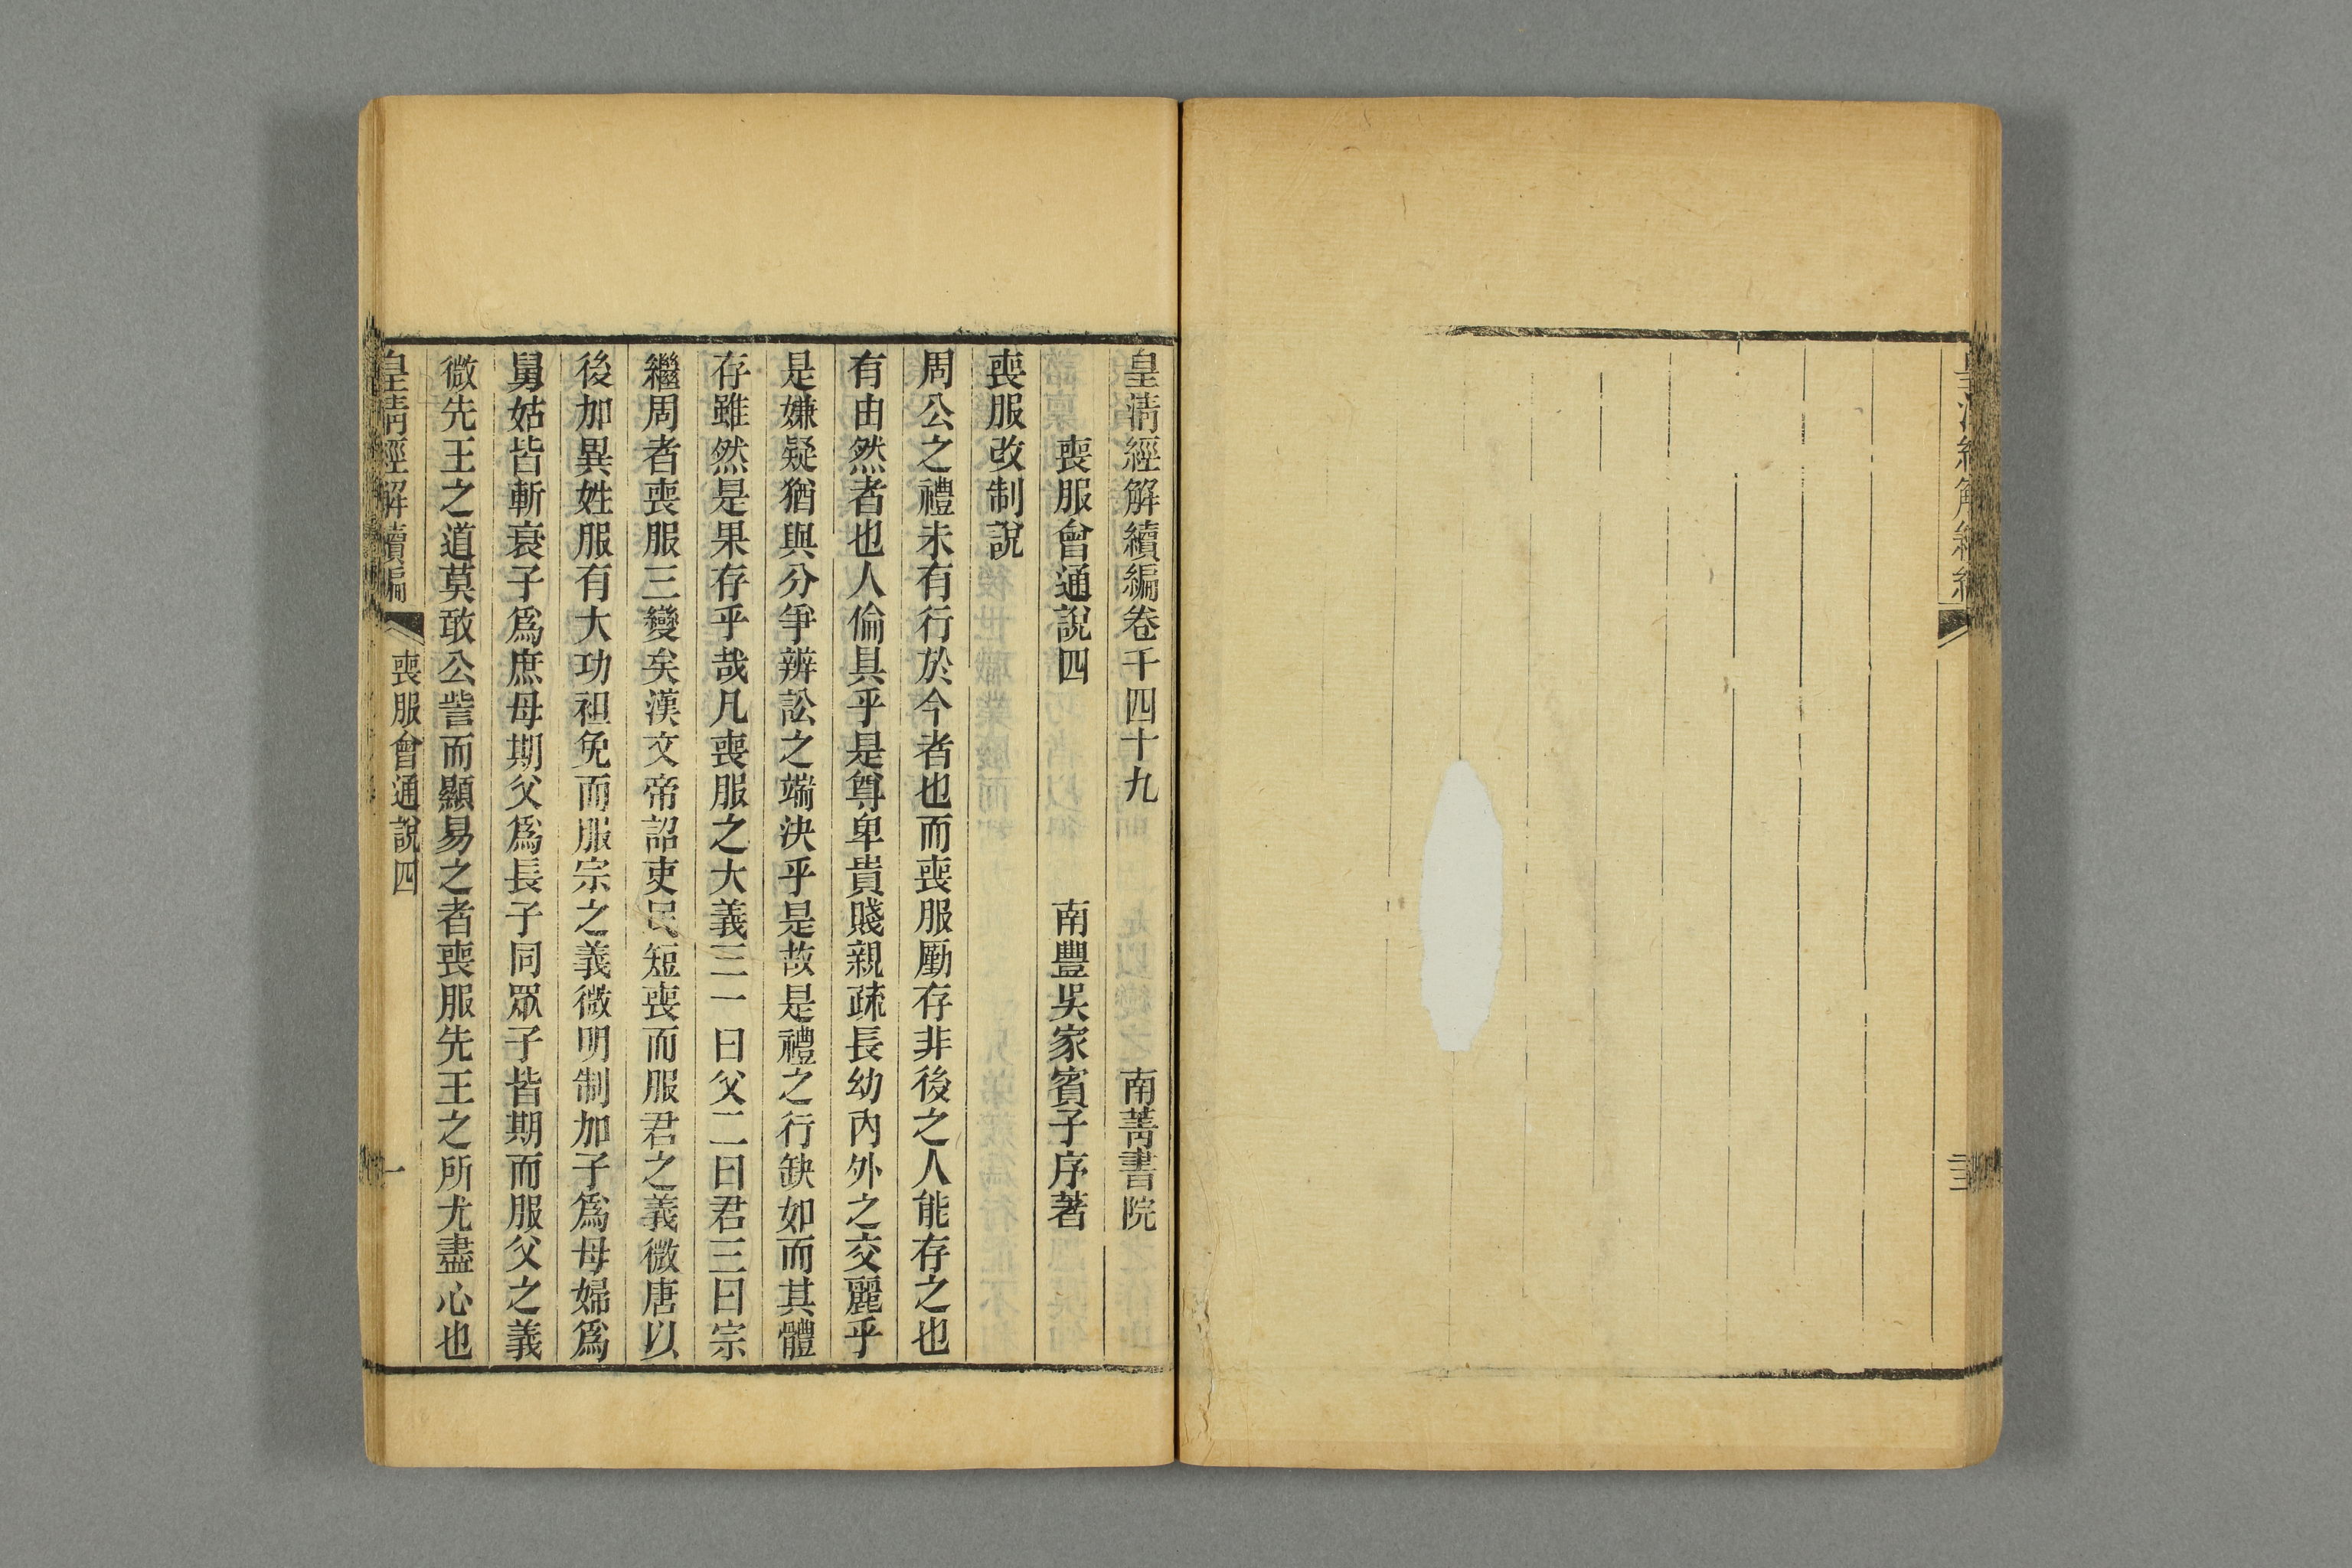 皇清經解續編
三
皇清經解續編卷千四十九 南菁書院
喪服會通說四 南豐吳家賓子序著
喪服改制說
周公之禮未有行於今者也而喪服厪存非後之人能存之也
有由然者也人倫具乎是尊卑貴賤親疏長幼內外之交麗乎
是嫌疑猶與分爭辨訟之端決乎是故是禮之行缺如而其體
存雖然是果存乎哉凡喪服之大義三一曰父二曰君三曰宗
繼周者喪服三變矣漢文帝詔吏民短喪而服君之義微唐以
後加異姓服有大功袒免而服宗之義微明制加子爲母婦爲
舅姑皆斬衰子爲庶母期父爲長子同眾子皆期而服父之義
微先王之道莫敢公訾而顯易之者喪服先王之所尤盡心也
皇清經解續編 喪服會通說四 一